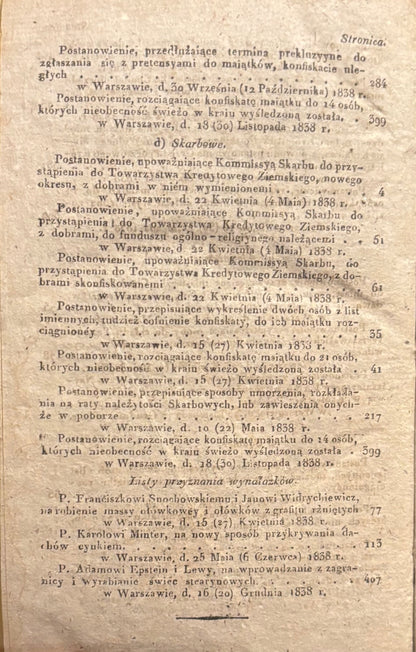 Stronica.
Postanowienie, przedłużaiące termina prekluzyyne do
zgłaszania się z pretensyami do maiątków, konfiskacie ule-
głych . . . . . . . . . . . . . 284
w Warszawie, d. 30 Września (12 Października) 1838 r.
Postanowienie, rozciągaiące konfiskatę maiątku do 14 osób,
których nieobecność świeżo w kraiu wyśledzoną została . 399
w Warszawie, d. 18 (30) Listopada 1838 r.
d) Skarbowe.
Postanowienie, upoważniaiące Kommissyą Skarbu do przy-
stąpienia do Towarzystwa Kredytowego Ziemskiego, nowego
okresu, z dobrami w niém wymienionemi . . . . 4
w Warszawie, d. 22 Kwietnia (4 Maia) 1838 r.
Postanowienie, upoważniaiące Kommissyą Skarbu do
przystąpienia do Towarzystwa Kredytowego Ziemskiego,
z dobrami, do funduszu ogólno-religiynego należącemi . 51
w Warszawie, d. 22 Kwietnia (4 Maia) 1838 r.
Postanowienie, upoważniaiące Kommissyą Skarbu, do
przystąpienia do Towarzystwa Kredytowego Ziemskiego, z do-
brami skonfiskowanemi . . . . . . . . 61
w Warszawie, d. 22 Kwietnia (4 Maia) 1838 r.
Postanowienie, przepisuiące wykreślenie dwóch osób z list
imiennych, tudzież cofnienie konfiskaty, do ich maiątku roz-
ciągnioney . . . . . . . . . . . 35
w Warszawie, d. 15 (27) Kwietnia 1838 r.
Postanowienie, rozciągaiące konfiskatę maiątku do 21 osób,
których nieobecność w kraiu świeżo wyśledzoną została . 41
w Warszawie, d. 15 (27) Kwietnia 1838 r.
Postanowienie, przepisuiące sposoby umorzenia, rozkłada-
nia na raty należytości Skarbowych, lub zawieszenia onych-
że w poborze . . . . . . . . . . 217
w Warszawie, d. 10 (22) Maia 1838 r.
Postanowienie, rozciągaiące konfiskatę maiątku do 14 osób,
których nieobecność w kraiu świeżo wyśledzoną została . 399
w Warszawie, d. 18 (30) Listopada 1838 r.
Listy przyznania wynalazków.
P. Franciszkowi Snochowskiemu i Janowi Widrychiewicz,
na robienie massy ołówkowey i ołówków z grafitu rżniętych 77
w Warszawie, d. 15 (27) Kwietnia 1838 r.
P. Karolowi Minter, na nowy sposób przykrywania da-
chów cynkiem. . . . . . . . . . . 113
w Warszawie, d. 25 Maia (6 Czerwca) 1838 r.
P. Adamowi Epstein i Lewy, na wprowadzanie z zagra-
nicy i wyrabianie świec stearynowych. . . . . . 407
w Warszawie, d. 16 (20) Grudnia 1838 r.